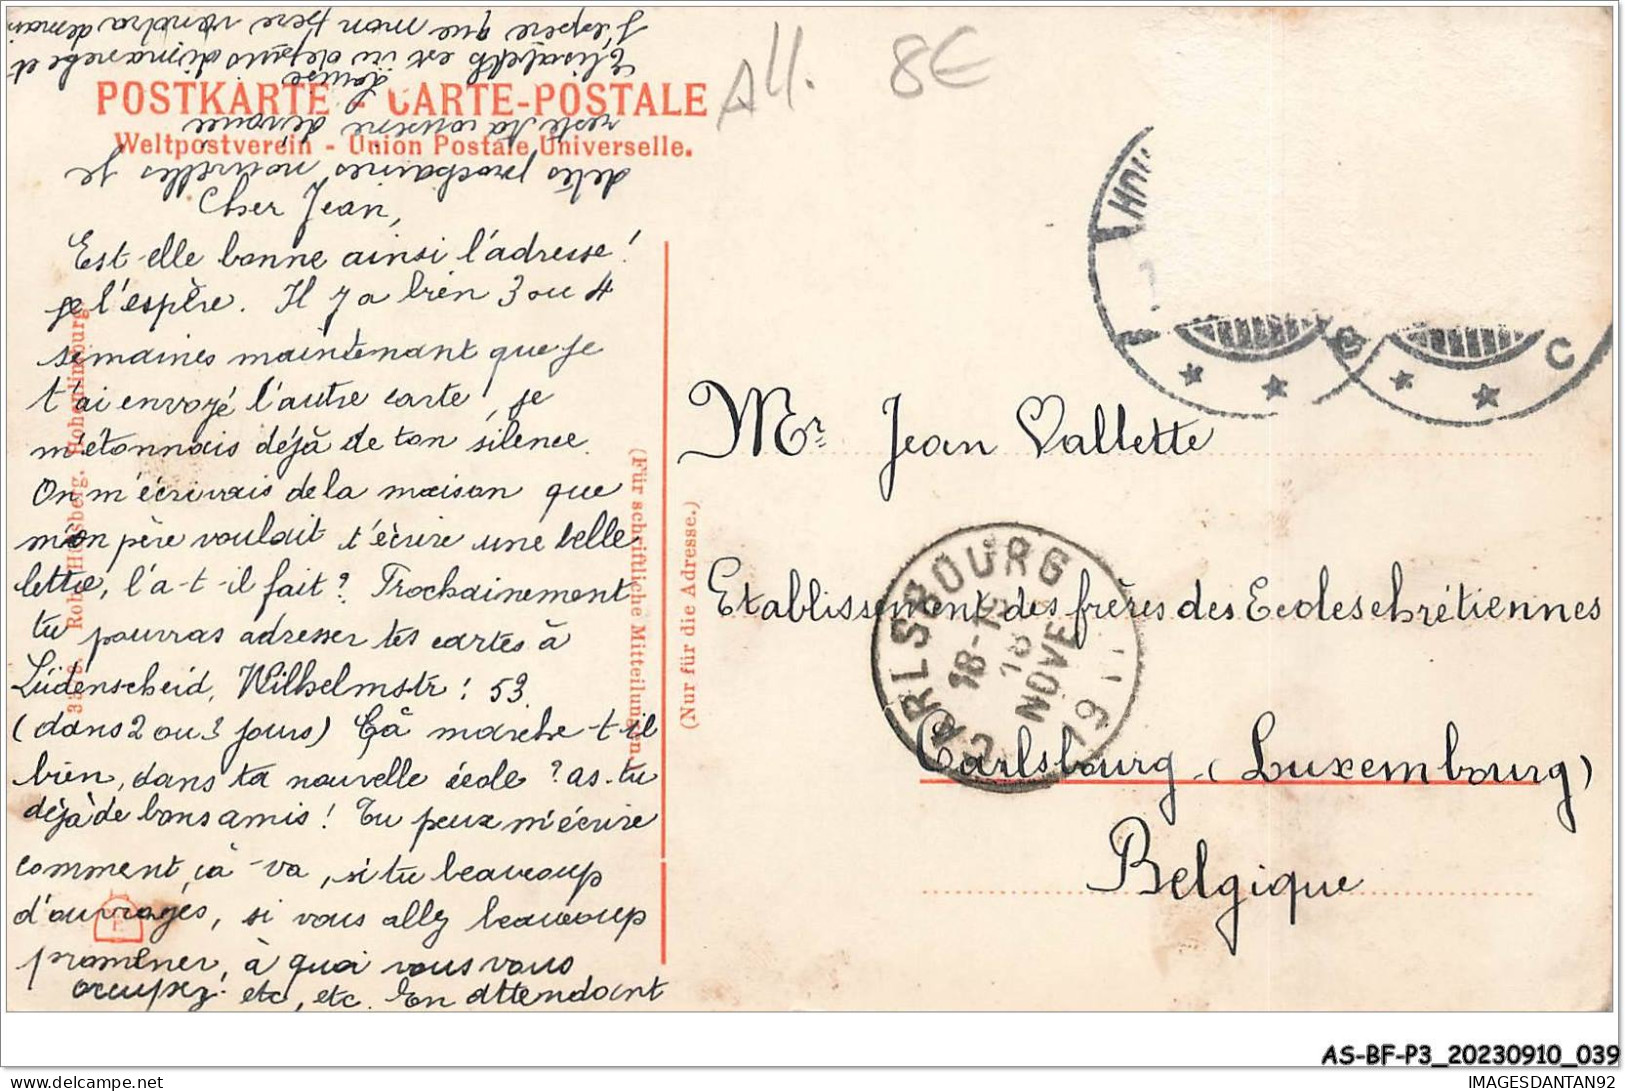 All. 8€
POSTKARTE - CARTE-POSTALE
Weltpostverein - Union Postale Universelle.
Cher Jean,
Est-elle bonne ainsi l'adresse!
je l'espère. Il y a bien 3 ou 4
semaines maintenant que je
t'ai envoyé l'autre carte, je
m'étonnais déjà de ton silence.
On m'écrivais de la maison que
mon père voulait t'écrire une belle
lettre, l'a-t-il fait? Prochainement
tu pourras adresser tes cartes à
Lüdenscheid, Wilhelmstr: 53.
(dans 2 ou 3 jours) Çà marche-t-il
bien, dans ta nouvelle école? as-tu
déjà de bons amis! Tu peux m'écrire
comment çà-va, si tu beaucoup
d'ouvrages, si vous allez beaucoup
promener, à quoi vous vous
occupez. etc, etc. En attendant
de tes prochaines nouvelles je
reste ta cousine dévouée
Louise
Elisabeth est ici depuis dimanche et
J'espère que mon père viendra demain
Robert Hülsberg, Hohenlimburg
(Für schriftliche Mitteilungen.)
(Nur für die Adresse.)
Mr. Jean Vallette
Etablissement des frères des Ecoles chrétiennes
Carlsbourg (Luxembourg)
Belgique
CARLSBOURG
18-19
18
NOVE
19
HOH
* * C
* * C
AS-BF-P3_20230910_039
delcampe.net
IMAGESDANTAN92